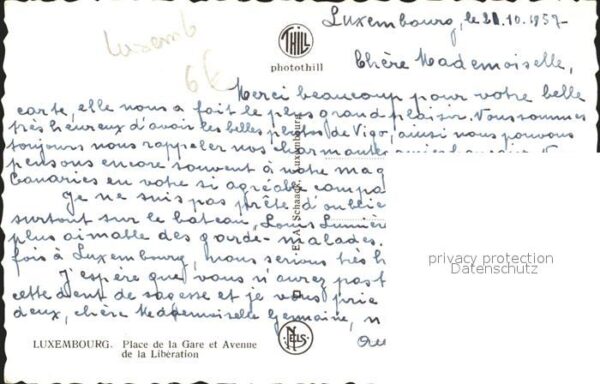 Luxembourg, le 21.10.1957
Luxemb
6€
THILL
photothill
Chère Mademoiselle,
Merci beaucoup pour votre belle
carte, elle nous a fait le plus grand plaisir. Nous sommes
très heureux d'avoir les belles photos de Vigo, ainsi nous pouvons
toujours nous rappeler nos charmantes
pensons encore souvent à notre mag
Canaries en votre si agréable compa
Je ne suis pas prête d'oublie
surtout sur le bateau, Louis Lumièr
plus aimable des garde-malades.
fois à Luxembourg, nous serions très h
J'espère que vous n'aurez pas t
cette dent de sagesse et je vous prie
deux, chère Mademoiselle Germaine, n
Ed. A. Schaack, Luxembourg
privacy protection
Datenschutz
NELS
LUXEMBOURG. Place de la Gare et Avenue
de la Libération